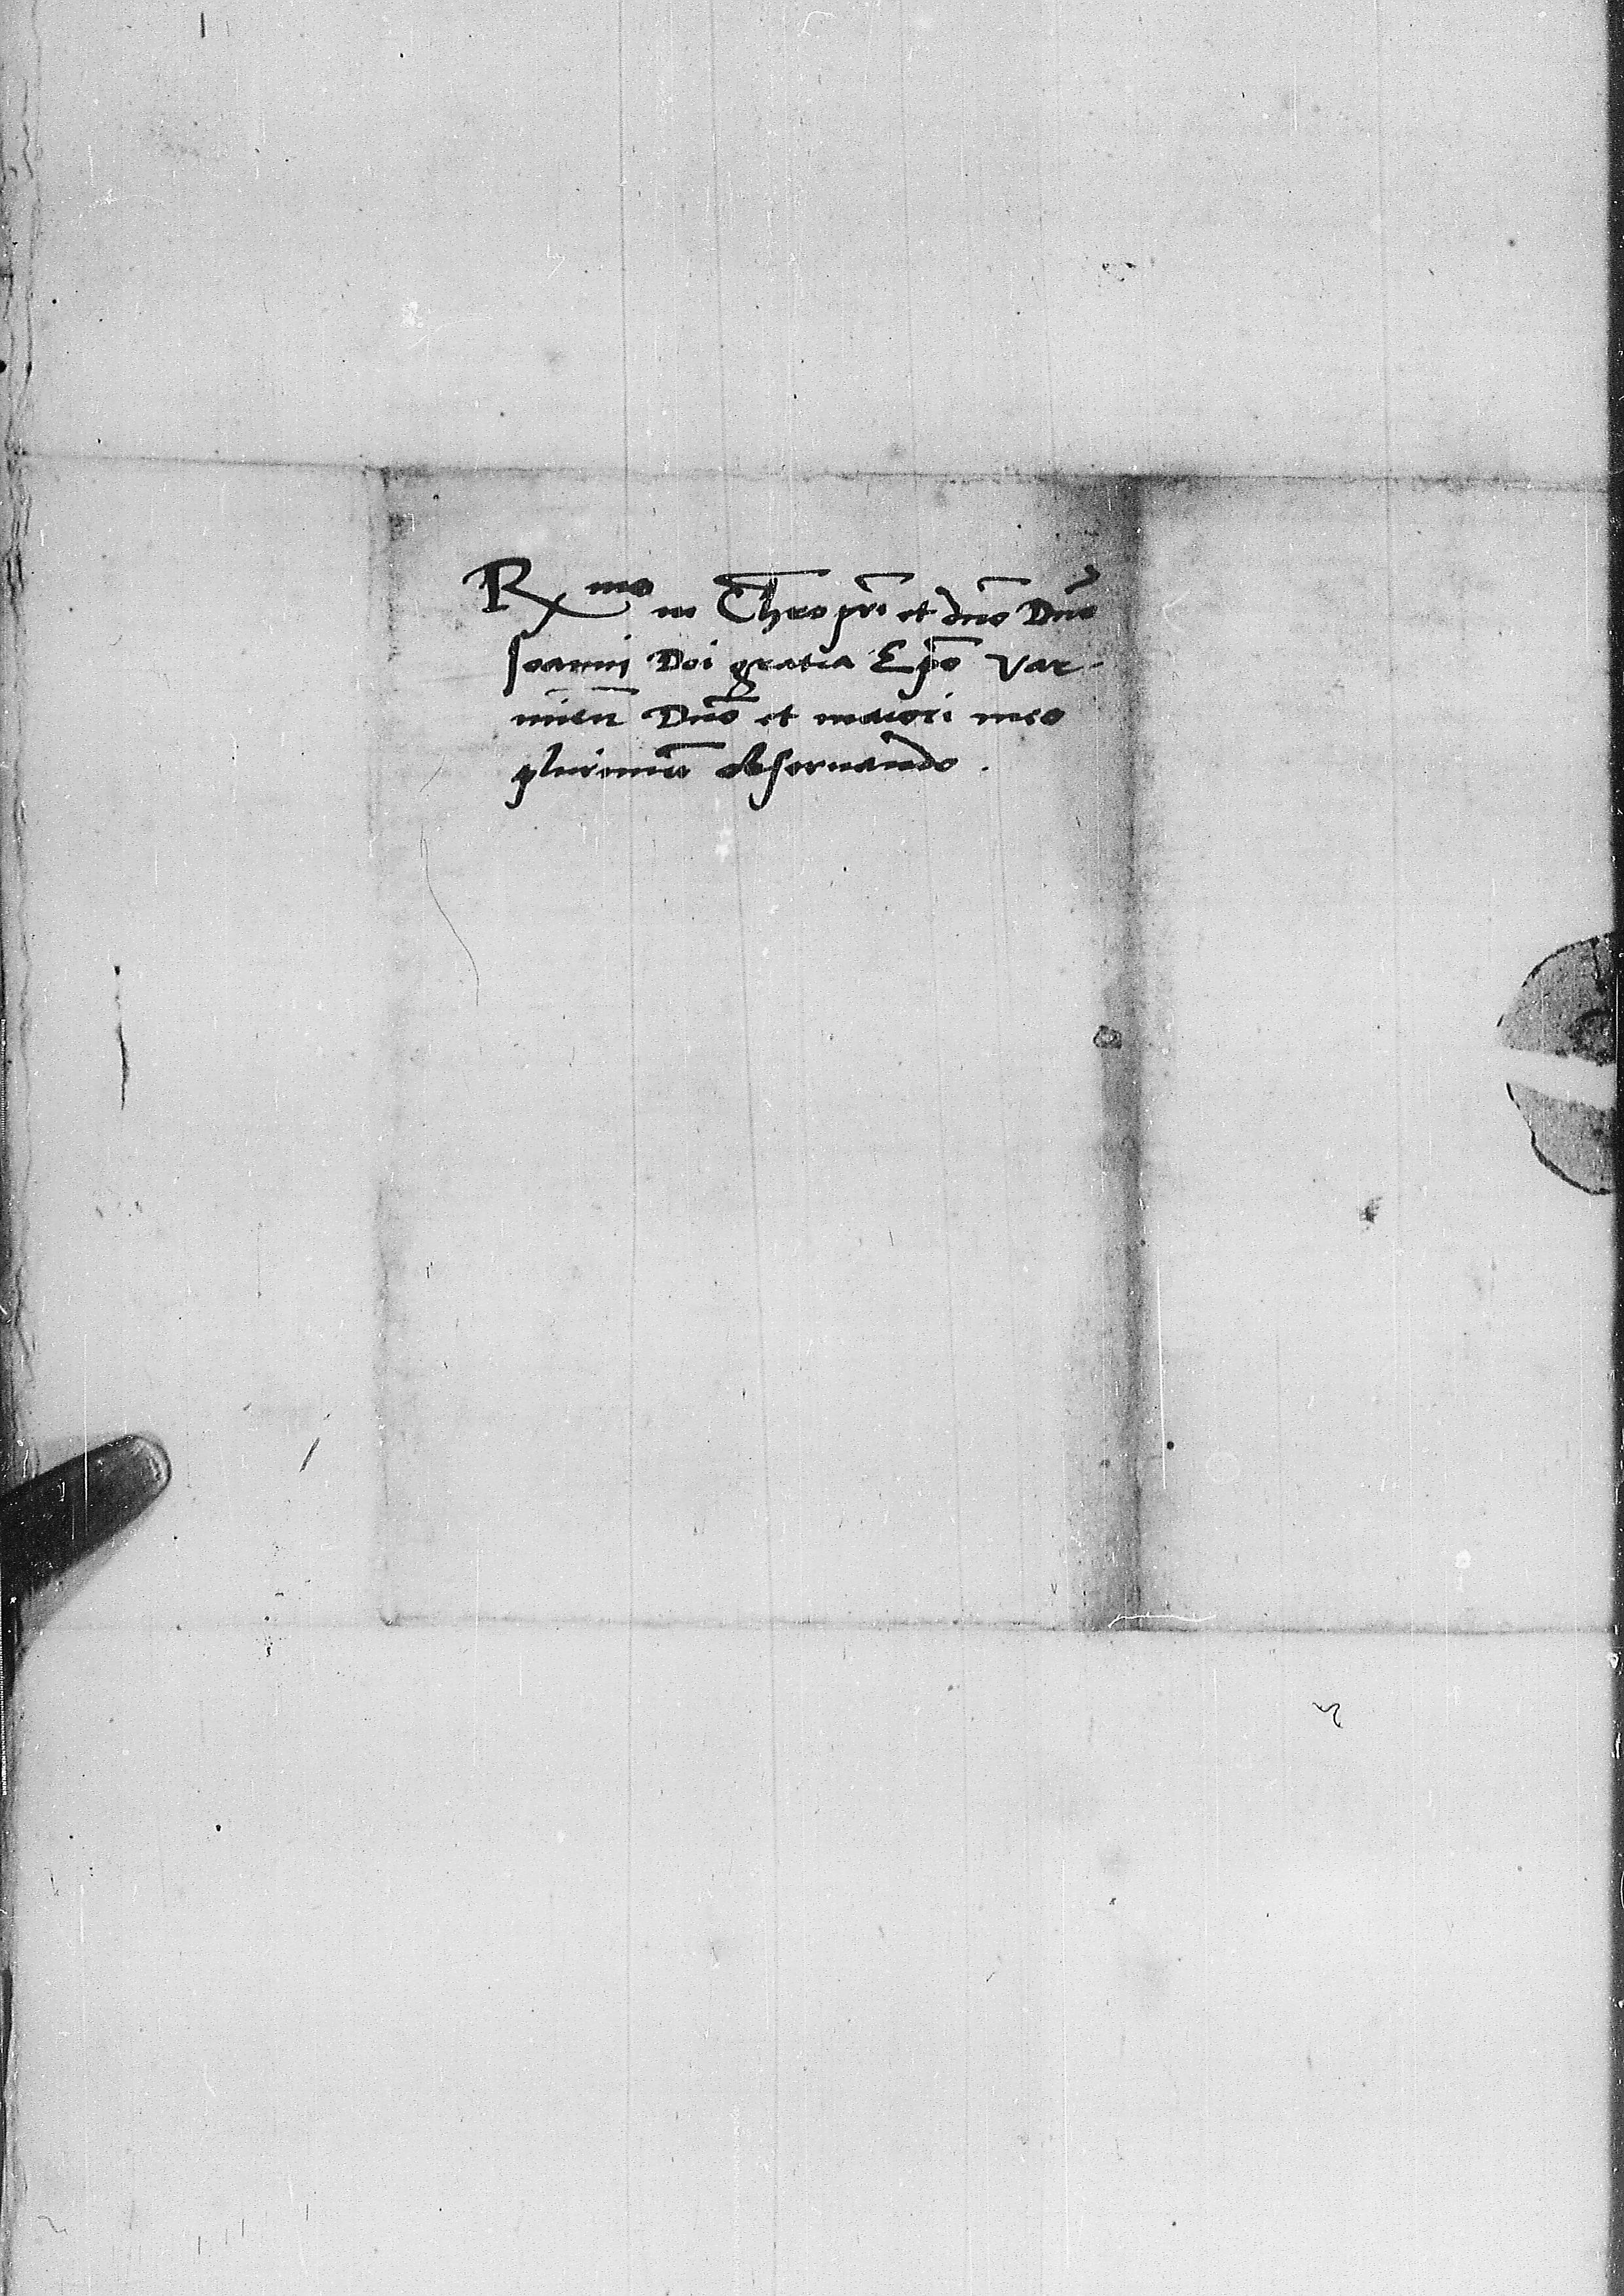 Rmo in Chro pri et dno Dno
Joanni Dei gratia Epo Var-
mien Dno et maiori meo
plurimu obseruando.